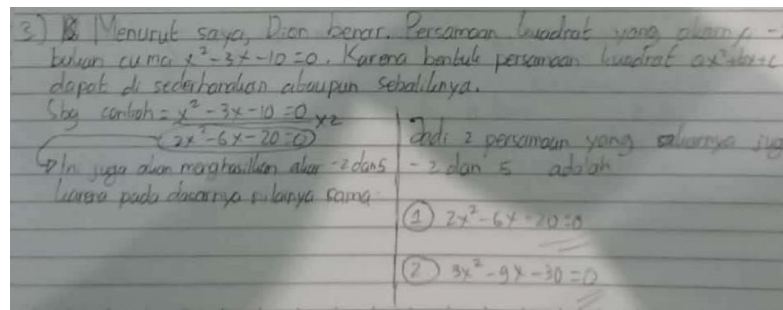 3) Menurut saya, Dion benar. Persamaan kuadrat yang akarny -
bukan cuma x² - 3x - 10 = 0. Karena bentuk persamaan kuadrat ax²+bx+c
dapat di sederhanakan ataupun sebaliknya.
Sbg contoh = x² - 3x - 10 = 0 x2
2x² - 6x - 20 = 0
Ini juga akan menghasilkan akar -2 dan 5
karena pada dasarnya nilainya sama
Jadi 2 persamaan yang akarnya jug
-2 dan 5 adalah
① 2x² - 6x - 20 = 0
② 3x² - 9x - 30 = 0